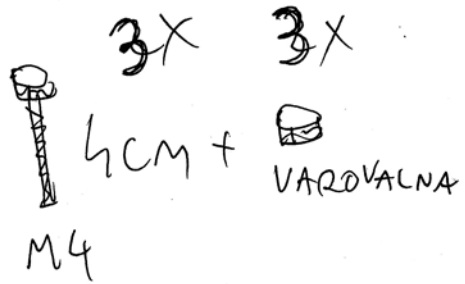 3X 3X
4CM +
VAROVALNA
M4